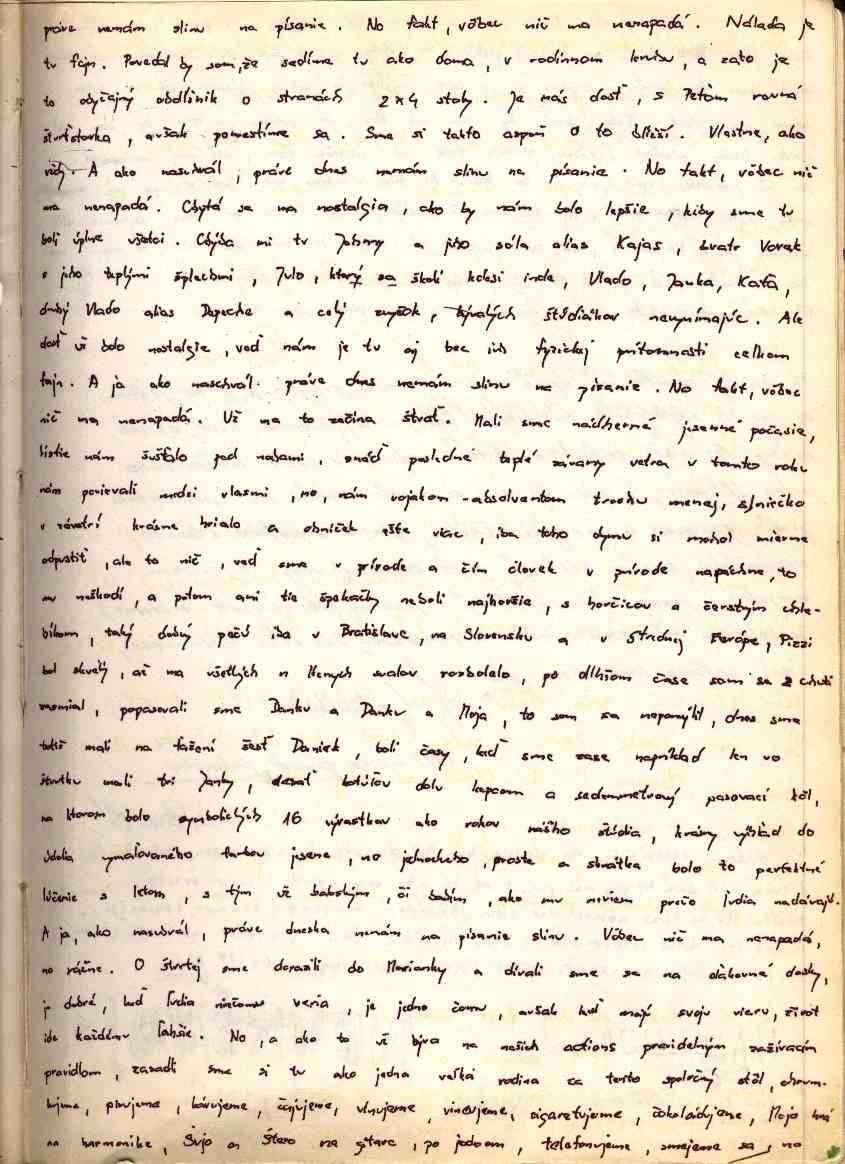 práve nemám slinu na písanie. No fakt, vôbec nič ma nenapadá. Nálada je
tu fajn. Povedal by som, že sedíme tu ako doma, v rodinnom kruhu, a zato je
to obyčajný obdĺžnik o stranách 2x4 stoly. Je nás dosť, s Peťom rovná
štvrťstovka, avšak pomestíme sa. Sme si takto aspoň o to bližší. Vlastne, ako
vždy. A ako naschvál, práve dnes nemám slinu na písanie. No fakt, vôbec nič
ma nenapadá. Chytá sa ma nostalgia, ako by nám bolo lepšie, kiby sme tu
boli úplne všetci. Chýba mi tu Johnny a jeho sóla alias Kajas, Vorek
s jeho teplými šplechmi, Julo, ktorý sa školí kdesi inde, Vlado, Janka, Kaťa,
druhý Vlado alias Depeche a celý zvyšok, bývalých štúdiákov nevynímajúc. Ale
dosť už bolo nostalgie, veď nám je tu aj bez ich fyzickej prítomnosti celkom
fajn. A ja ako naschvál práve dnes nemám slinu na písanie. No fakt, vôbec
nič ma nenapadá. Už ma to začína štvať. Mali sme nádherné jesenné počasie,
lístie nám šušťalo pod nohami, snáď posledné teplé závany vetra v tomto roku
nám povievali medzi vlasmi, no, nám vojakom-absolventom trochu menej, slniečko
v závetrí krásne hrialo a ohníček ešte viac, iba toho dymu si mohol mierne
odpustiť, ale to nič, veď sme v prírode a čím človek v prírode napáchne, to
mu neškodí, a potom ani tie špekačky neboli najhoršie, s horčicou a čerstvým chle-
bíkom, taký dobrý pečú iba v Bratislave, na Slovensku a v Strednej Európe, Pizzi
bol skvelý, až ma všetkých n Henych svalov rozbolelo, po dlhšom čase som sa z chuti
zasmial, popasovali sme Danku a Danku a Moja, to som sa nepomýlil, dnes sme
totiž mali na ťažení šesť Daniek, boli časy, keď sme zase napríklad len vo
štvrtku mali tri Janky, desať kotúľov dolu kopcom a sedemmetrový pasovací kôl,
na ktorom bolo symbolických 16 výrastkov ako rokov nášho štúdia, krásny výhľad do
údolia vymaľovaného farbou jesene, no jednoducho, proste a skrátka bolo to perfektné
lúčenie s letom, s tým už babským, či babím, ako mu neviem prečo ľudia nadávajú.
A ja, ako naschvál, práve dneska nemám na písanie slinu. Vôbec nič ma nenapadá,
no vážne. O štvrtej sme dorazili do Marianky a dívali sme sa na ďakovné dosky,
je dobré, keď ľudia niečomu veria, je jedno čomu, avšak keď majú svoju vieru, život
ide každému ľahšie. No, a ako to už býva na našich actions pravidelným zažívacím
pravidlom, zasadli sme si tu ako jedna veľká rodina za tento spoločný stôl, chrum-
kujeme, pivujeme, kávujeme, čajujeme, vínujeme, cigaretujeme, čokoládujeme, Mojo hrá
na harmonike, Svijo a Števo na gitare, po jednom, telefonujeme, smejeme sa, no